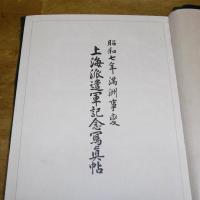 昭和七年満洲事変
上海派遣軍記念寫眞帖